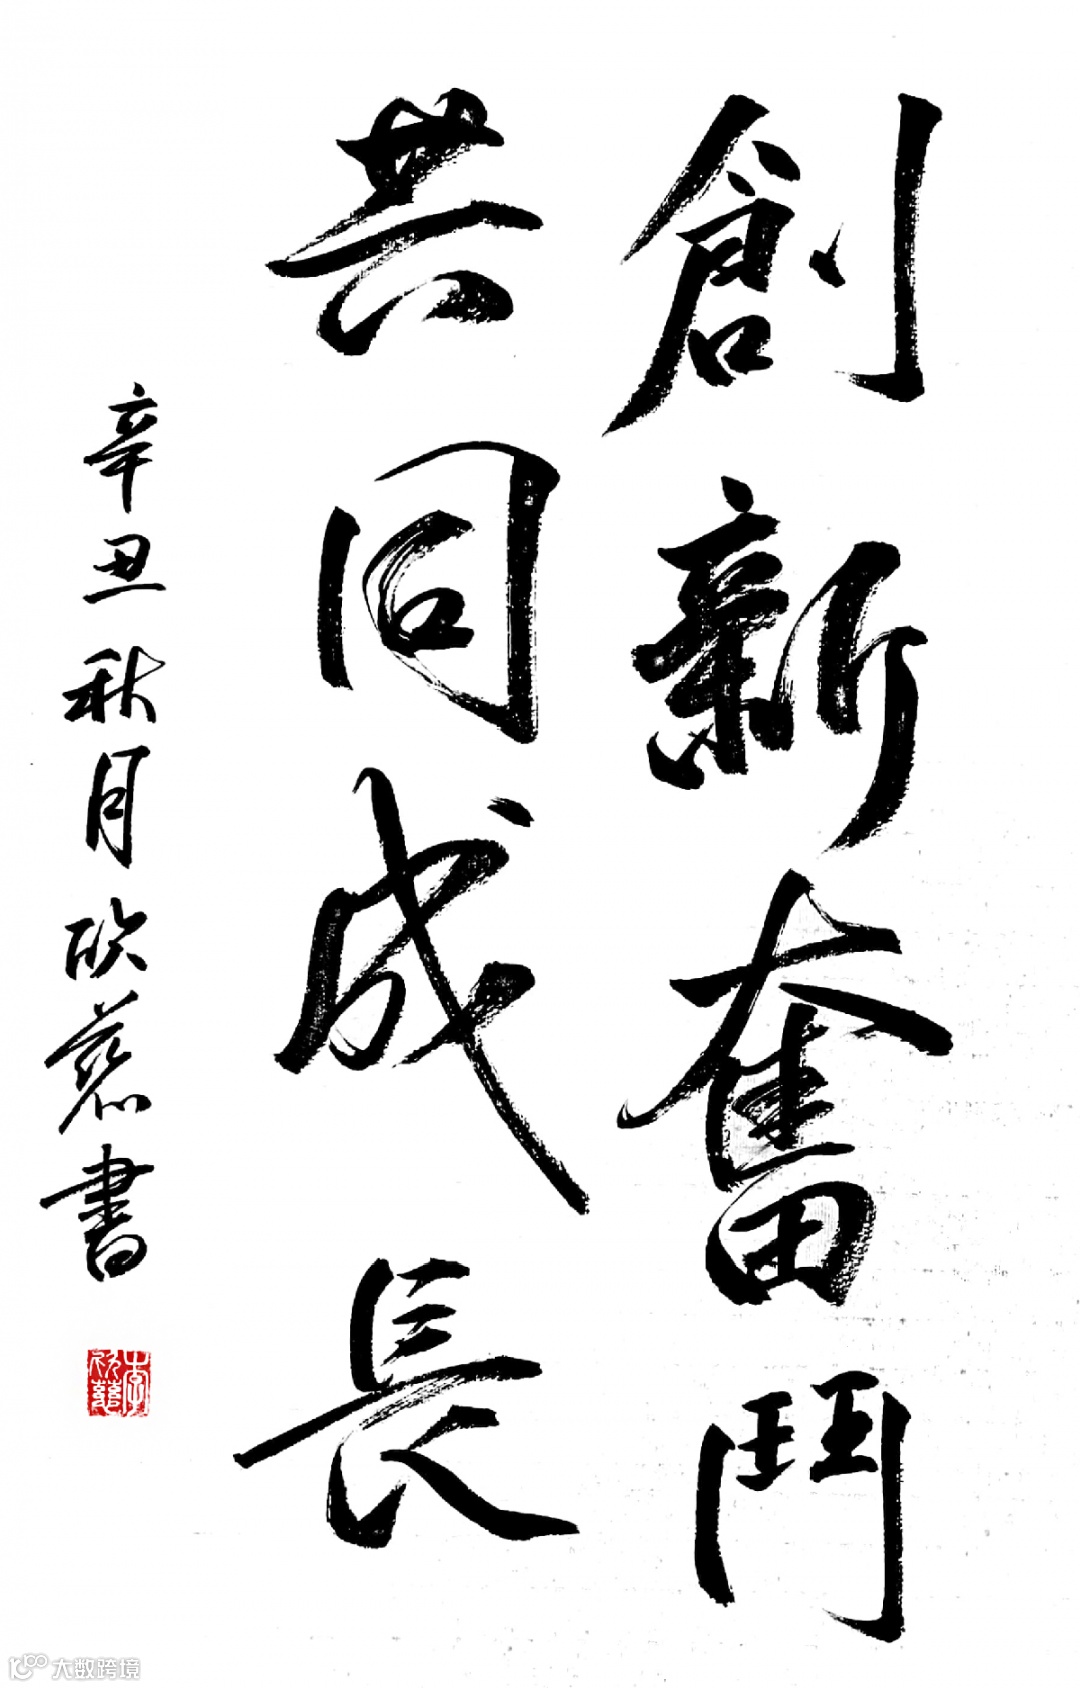 創新奮鬥
共同成長
辛丑秋月欣慈書
大数跨境